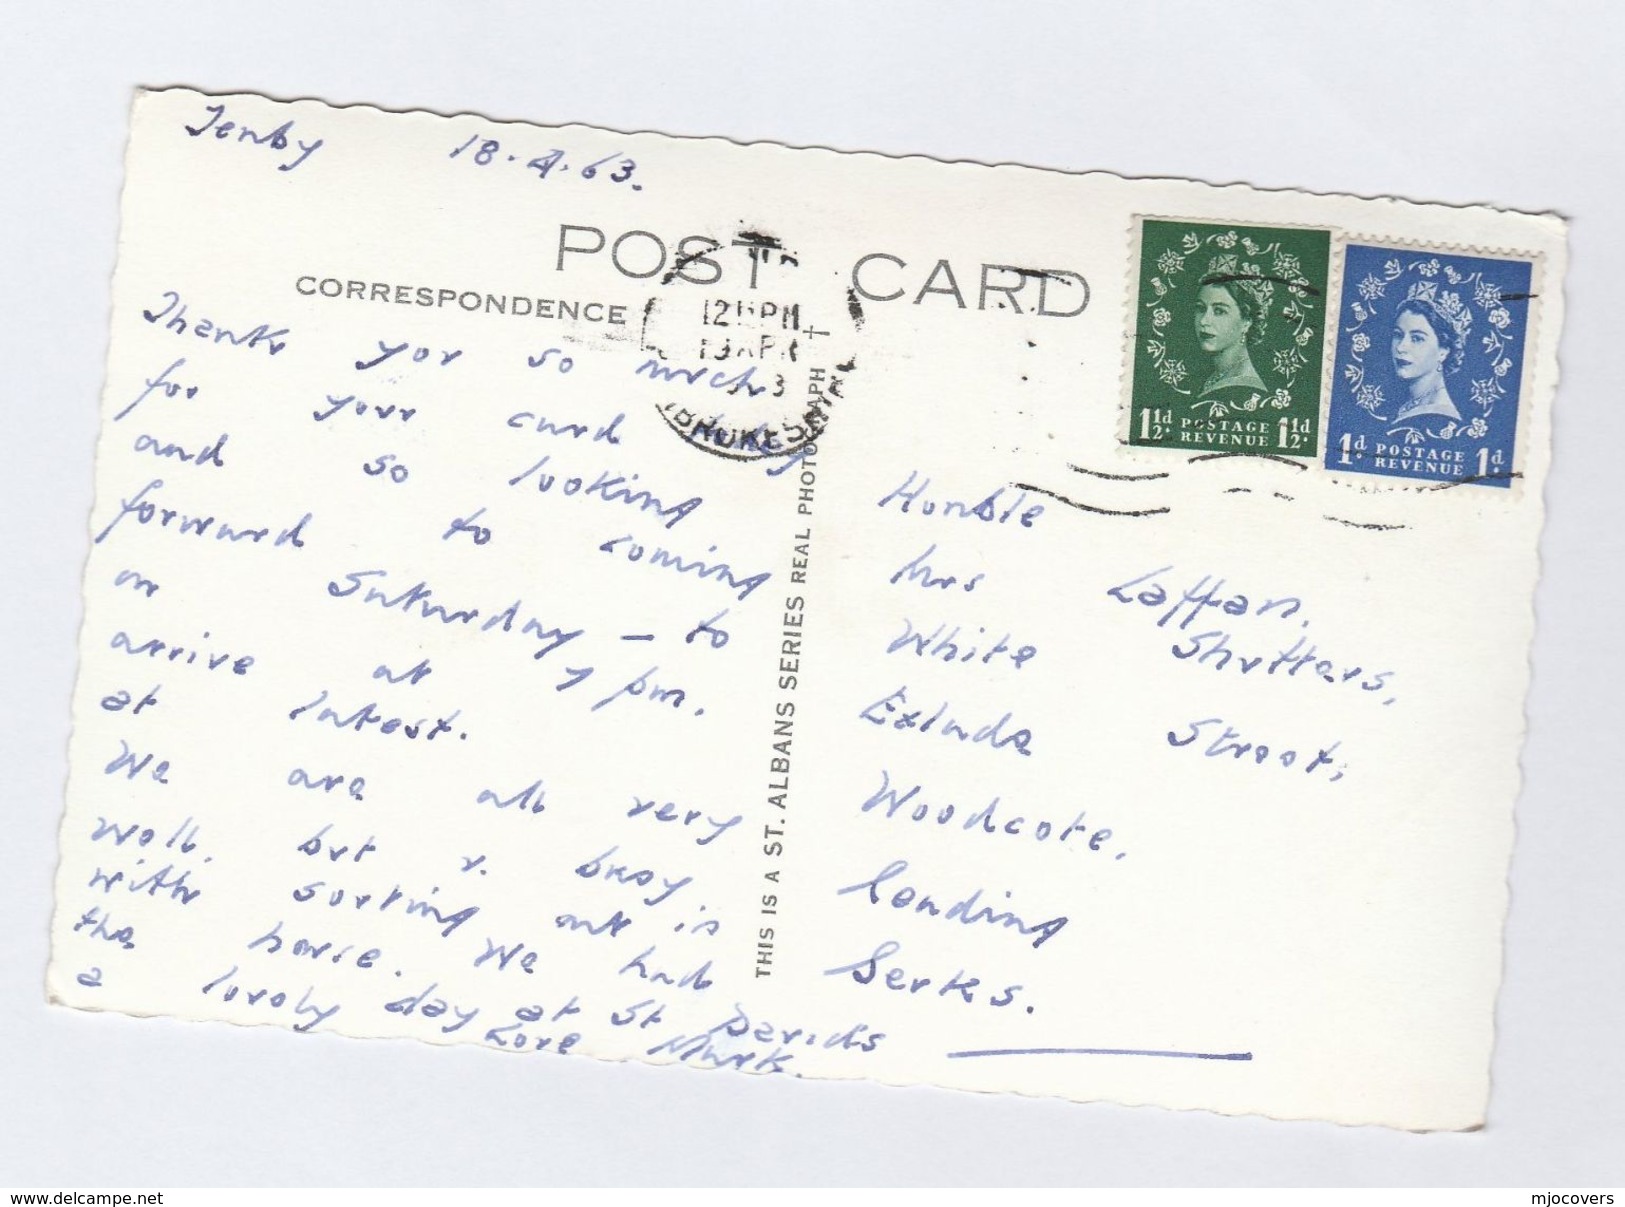 Tenby 18.4.63.
POST CARD
CORRESPONDENCE
12 PM
19 APR
Thank you so much
for your card
and so looking
forward to coming
on Saturday – to
arrive at 7 pm.
at latest.
We are all very
well. but v. busy
with sorting out in
the house. We had
a lovely day at St Davids
Love Mark.
THIS IS A ST. ALBANS SERIES REAL PHOTOGRAPH
1½d POSTAGE REVENUE 1½d
1d POSTAGE REVENUE 1d
Mrs Laffan.
White Shutters,
Street,
Woodcote,
Reading
Berks.
www.delcampe.net
mjocovers